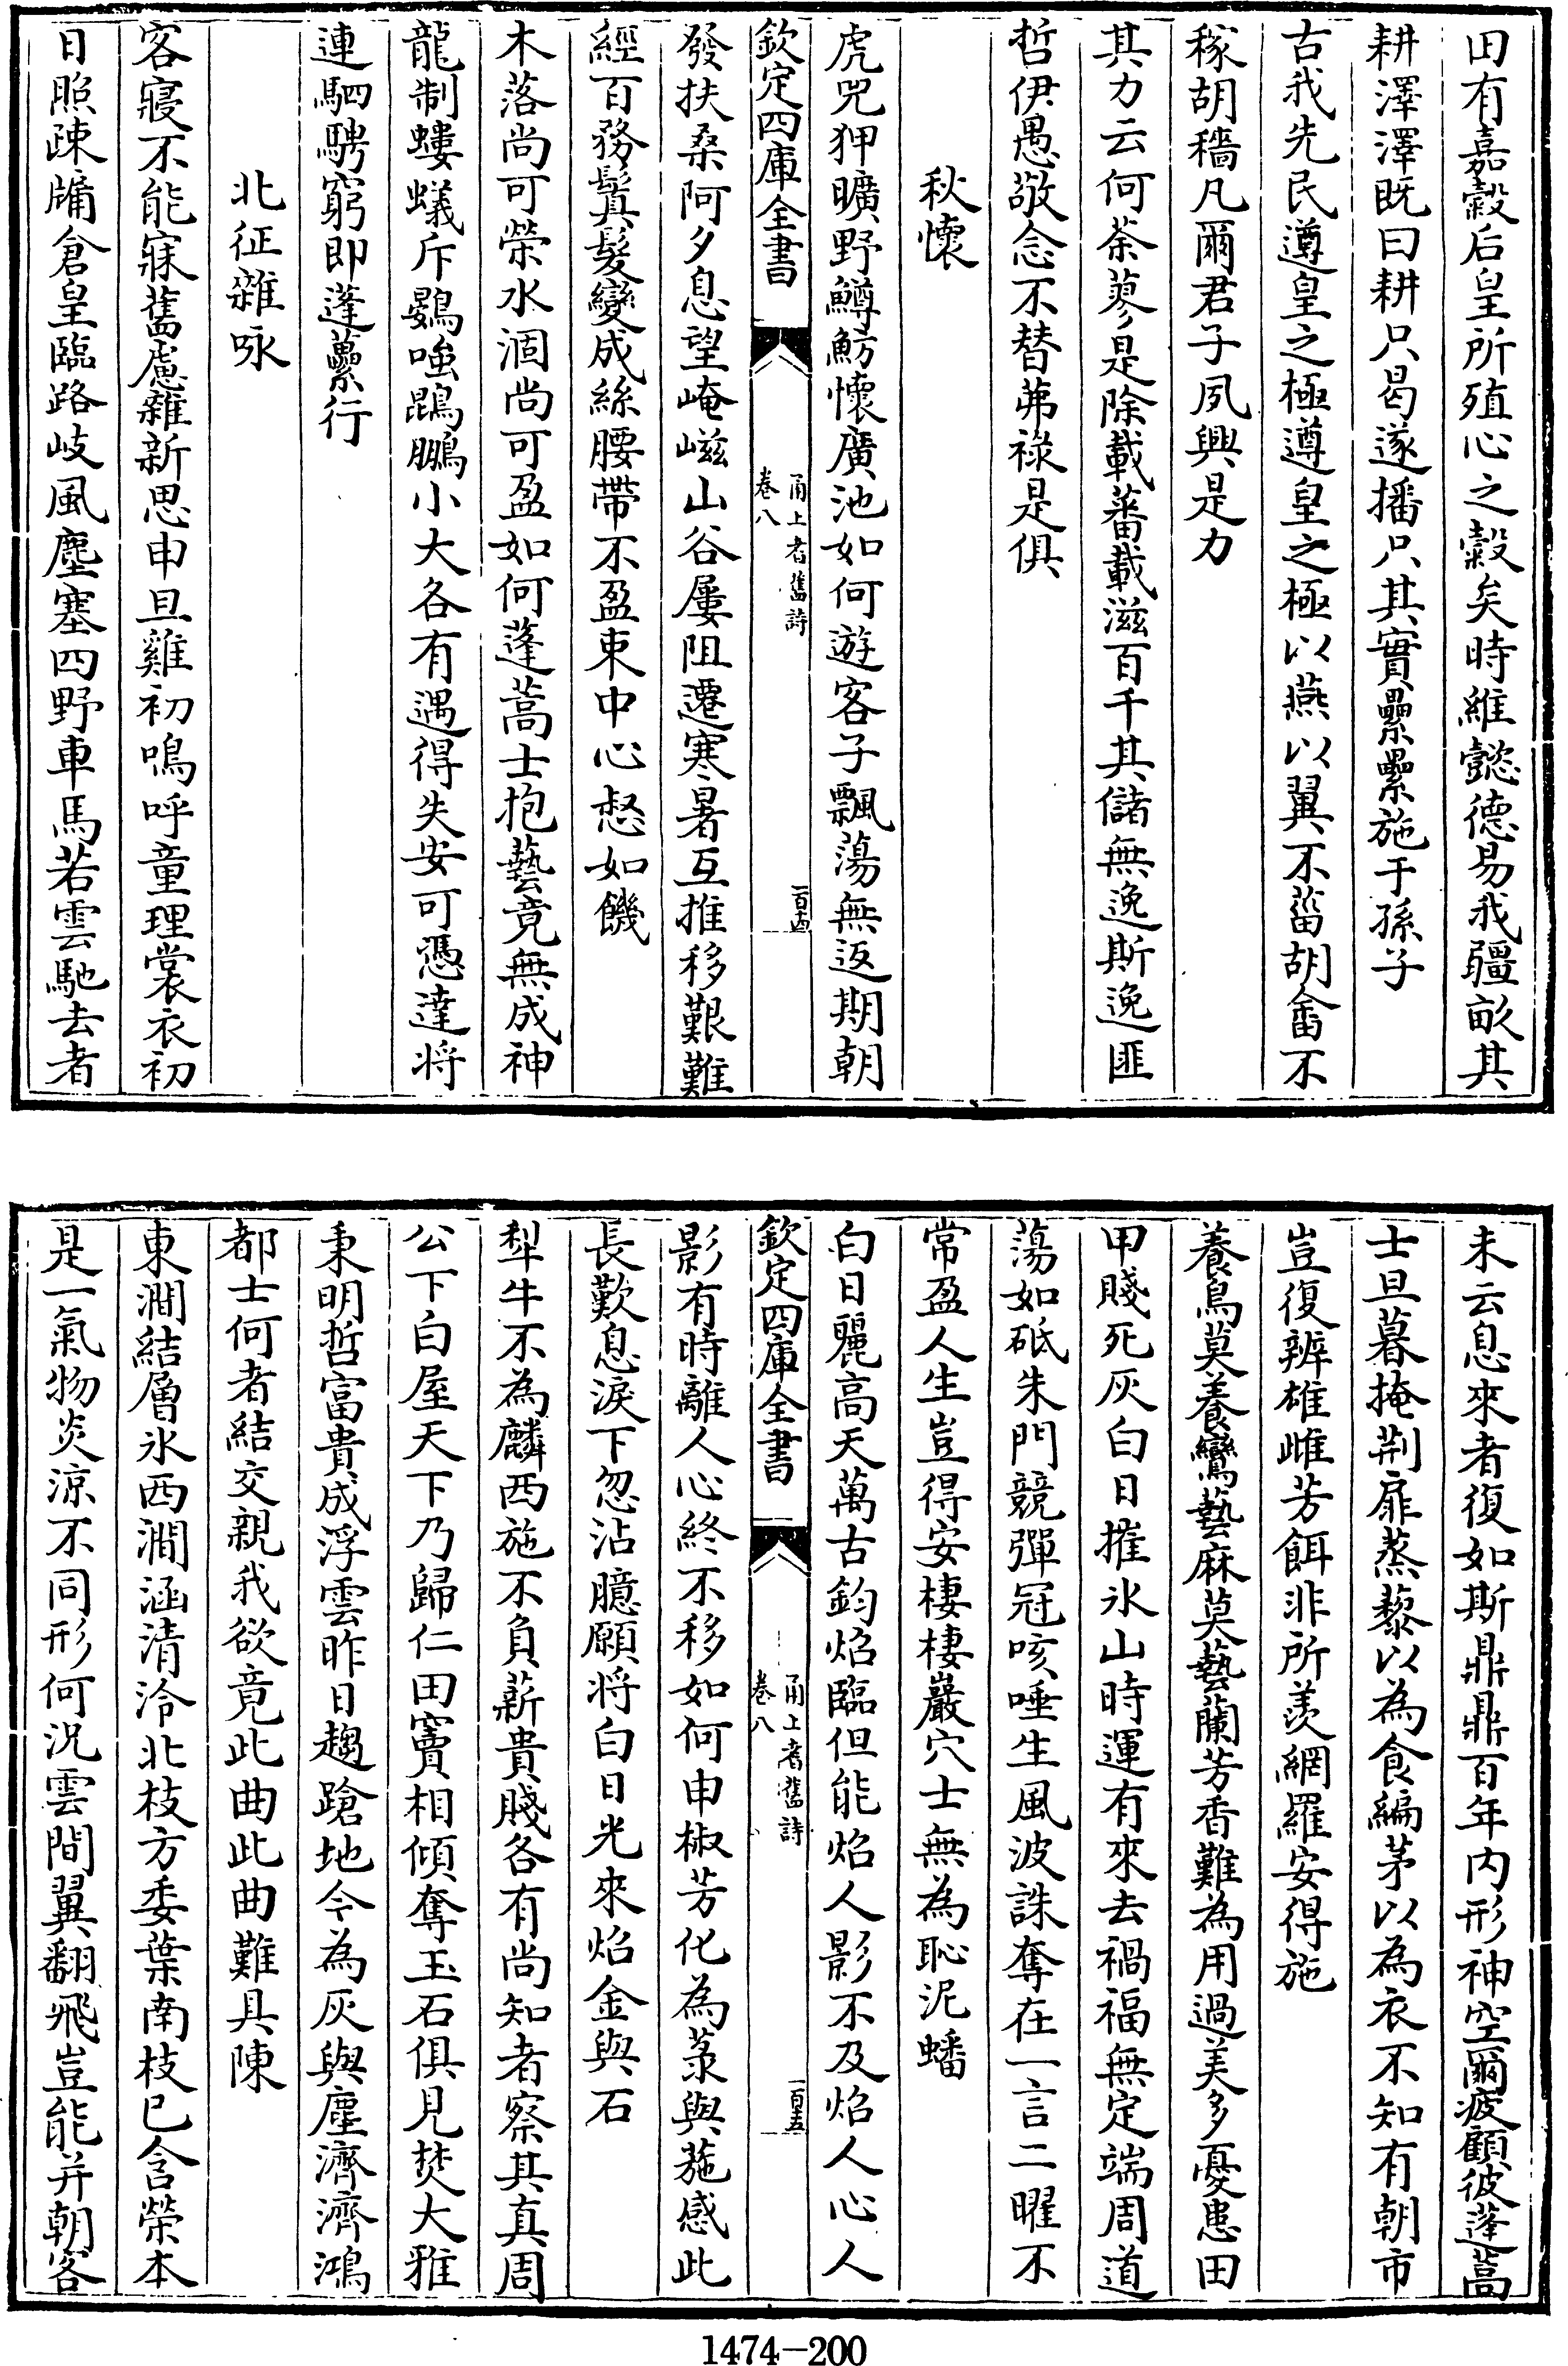 田有嘉穀后皇所殖心之穀矣時維懿德易我疆畝其
耕澤澤既曰耕只曷遂播只其實纍纍施于孫子
古我先民遵皇之極遵皇之極以燕以翼不菑胡畬不
稼胡穡凡爾君子夙興是力
其力云何荼蓼是除載蕃載滋百千其儲無逸斯逸匪
哲伊愚敬念不替茀祿是俱
秋懷
虎兕狎曠野鱒魴懷廣池如何遊客子飄蕩無返期朝
欽定四庫全書
甬上耆舊詩
卷八
發扶桑阿夕息望崦嵫山谷屢阻遷寒暑互推移艱難
經百務鬒髮變成絲腰帶不盈束中心惄如饑
木落尚可榮水涸尚可盈如何蓬蒿士抱藝竟無成神
龍制螻蟻斥鷃嗤鵾鵬小大各有遇得失安可憑達將
連駟騁窮即蓬虆行
北征雜咏
客寢不能寐舊慮雜新思申旦雞初鳴呼童理裳衣初
日照疎牗倉皇臨路岐風塵塞四野車馬若雲馳去者
未云息來者復如斯鼎鼎百年內形神空爾疲顧彼蓬蒿
士旦暮掩荆扉蒸藜以為食編茅以為衣不知有朝市
豈復辨雄雌芳餌非所羨網羅安得施
養鳥莫養鸞藝麻莫藝蘭芳香難為用過美多憂患田
甲賤死灰白日摧氷山時運有來去禍福無定端周道
蕩如砥朱門競彈冠咳唾生風波誅奪在一言二曜不
常盈人生豈得安棲棲巖穴士無為恥泥蟠
白日麗高天萬古鈞焰臨但能焰人影不及焰人心人
欽定四庫全書
甬上耆舊詩
卷八
影有時離人心終不移如何申椒芳化為菉與葹感此
長歎息淚下忽沾臆願將白日光來焰金與石
犂牛不為麟西施不負薪貴賤各有尚知者察其真周
公下白屋天下乃歸仁田竇相傾奪玉石俱見焚大雅
秉明哲富貴成浮雲昨日趨蹌地今為灰與塵濟濟鴻
都士何者結交親我欲竟此曲此曲難具陳
東澗結層氷西澗涵清泠北枝方委葉南枝已含榮本
是一氣物炎涼不同形何況雲間翼翻飛豈能并朝客
1474-200